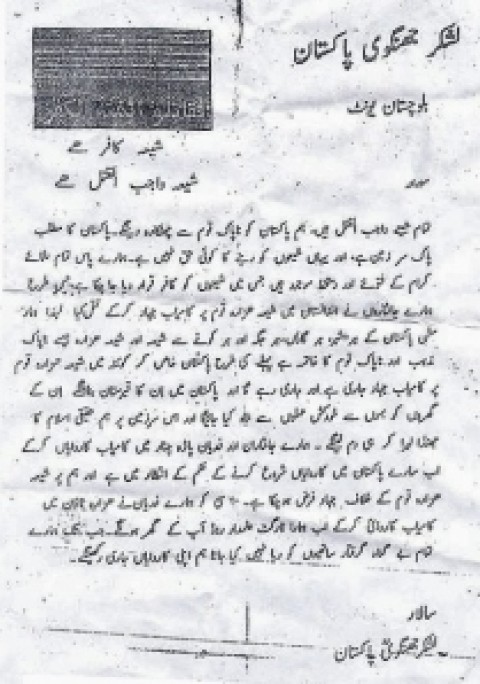 لشکر جھنگوی پاکستان
بلوچستان یونٹ
شیعہ کافر ہے
شیعہ واجب القتل ہے
تمام شیعے واجب القتل ہیں، ہم پاکستان کو ناپاک قوم سے چھٹکارہ دینگے۔ پاکستان کا مطلب
پاک سر زمین ہے، اور یہاں شیعوں کو رہنے کا کوئی حق نہیں ہے۔ ہمارے پاس تمام علمائے
کرام کے فتوئے اور دستخط موجود ہیں جن میں شیعوں کو کافر قرار دیا جا چکا ہے۔ جس طرح
ہمارے نے افغانستان میں شیعہ ہزارہ قوم پر کامیاب جہاد کرکے لہذا ہمارا
مشن پاکستان کے ہر شہر، ہر گاؤں، ہر جگہ اور ہر کونے سے شیعہ اور شیعہ ہزارہ جیسے ناپاک
اور ناپاک قوم کا خاتمہ ہے پہلے کی طرح پاکستان خاص کر کوئٹہ میں شیعہ ہزارہ قوم
پر کامیاب جہاد جاری ہے اور جاری رہے گا اور پاکستان میں ان کا قبرستان بنائینگے ان کے
گھروں کو بموں سے خودکش حملوں سے کیا جائیگا اور اسی سرزمین پر ہم حقیقی اسلام کا
جھنڈا لہرا کر ہی دم لینگے۔ ہمارے جانثاران اور فدویان پارہ چنار میں کامیاب کاروایاں کرکے
اب سارے پاکستان میں کاروایاں شروع کرنے کے حکم کے انتظار میں ہے اور ہم پر شیعہ
ہزارہ قوم کے خلاف جہاد فرض ہو چکا ہے۔ کو ہمارے فدویان نے ہزارہ ٹاؤن میں
کامیاب کاروائی کرکے اب ہمارا ٹارگٹ علمدار روڈ آپ کے گھر ہونگے۔ جب تک ہمارے
تمام بے گناہ گرفتار ساتھیوں کو رہا نہیں کیا جاتا ہم اپنی کاروایاں جاری رکھینگے۔
سالار
لشکر جھنگوی پاکستان